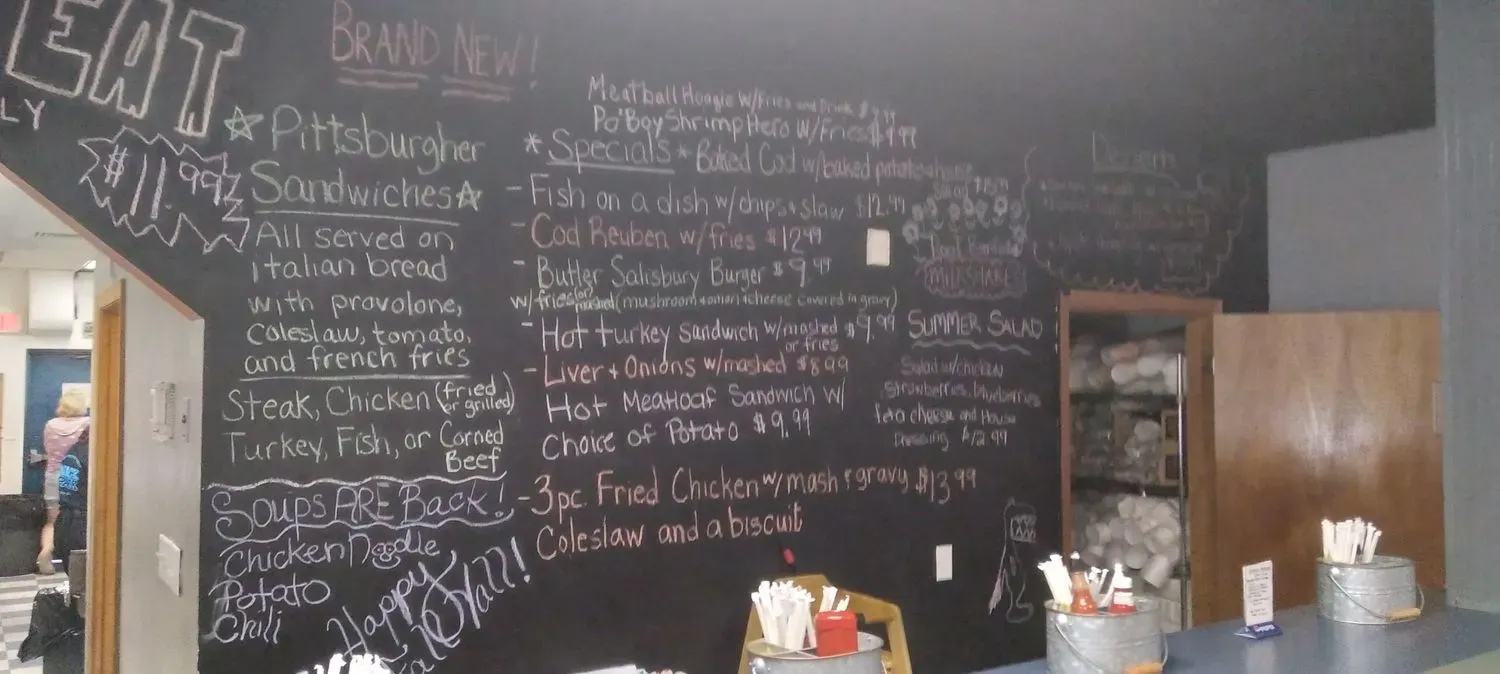 EAT
LY
BRAND NEW!
$11.99
☆ Pittsburgher
Sandwiches ☆
All served on
italian bread
with provolone,
coleslaw, tomato,
and french fries
Steak, Chicken (fried or grilled)
Turkey, Fish, or Corned
Beef
Soups ARE Back!
Chicken Noodle
Potato
Chili
Happy
Fall Y'all!
Meatball Hoagie w/Fries and Drink
Po'Boy Shrimp Hero w/Fries $9.99
* Specials * Baked Cod w/baked potato
- Fish on a dish w/chips + slaw $12.99
- Cod Reuben w/fries $12.49
- Butler Salisbury Burger $9.49
w/fries or mashed (mushroom + onion + cheese covered in gravy)
- Hot turkey sandwich w/mashed $9.99
or fries
- Liver + Onions w/mashed $8.99
Hot Meatloaf Sandwich w/
Choice of Potato $9.99
- 3pc. Fried Chicken w/mash & gravy $13.99
Coleslaw and a biscuit
MILKSHAKES
SUMMER SALAD
Salad w/chicken
strawberries, blueberries
feta cheese and House
Dressing $12.99